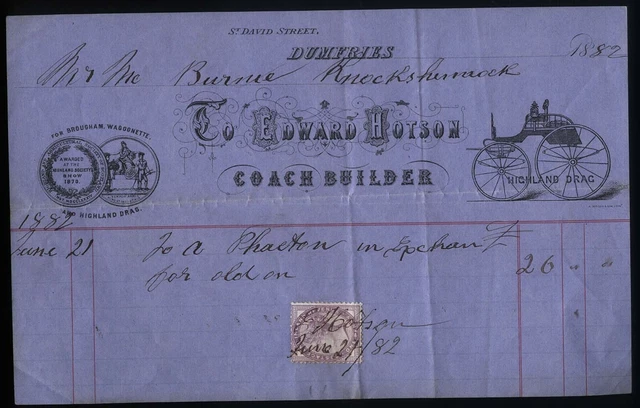 St DAVID STREET.
DUMFRIES 1882
Mr Mc Burnie Knockshinnock
FOR BROUGHAM, WAGGONETTE,
AWARDED
AT THE
HIGHLAND SOCIETY'S
SHOW
1878
AND HIGHLAND DRAG.
To EDWARD HOTSON
COACH BUILDER
HIGHLAND DRAG
1882
June 21 To a Phaeton in Exchan £
for old on 26 " "
E Hotson
June 29/82